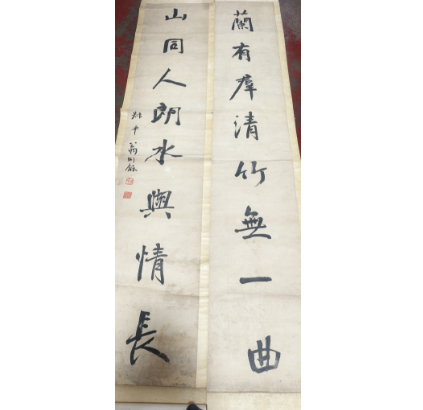 蘭有羣清竹無一曲
山同人朗水與情長
叔平翁同龢